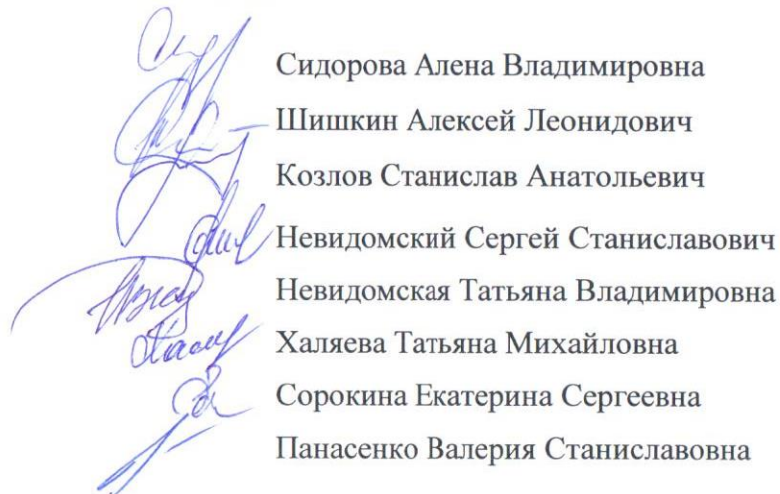 Сидорова Алена Владимировна
Шишкин Алексей Леонидович
Козлов Станислав Анатольевич
Невидомский Сергей Станиславович
Невидомская Татьяна Владимировна
Халяева Татьяна Михайловна
Сорокина Екатерина Сергеевна
Панасенко Валерия Станиславовна